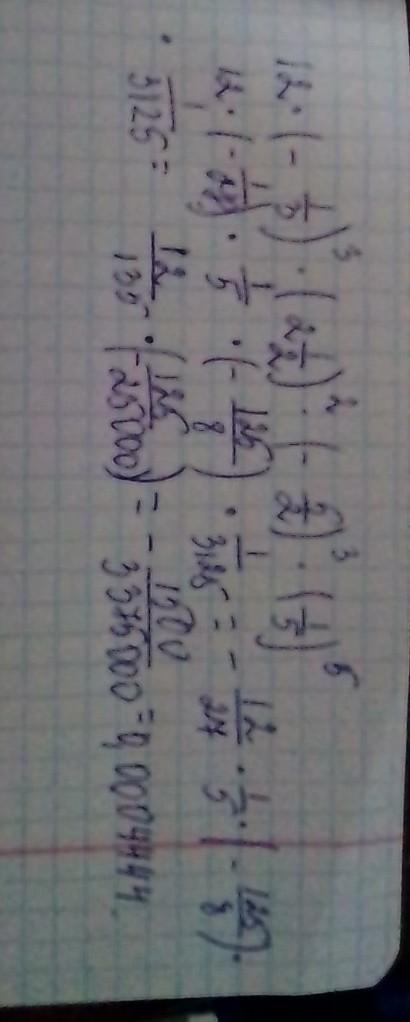 12 · (- 1/3)^3 · (2 1/2)^2 · (- 5/2)^3 · (1/5)^5
12 · (- 1/27) · 1/5 · (- 125/8) · 1/3125 = - 12/27 · 1/5 · (- 125/8) ·
· 1/3125 = 12/135 · (- 125/25000) = - 1500/3375000 = 0,0004444